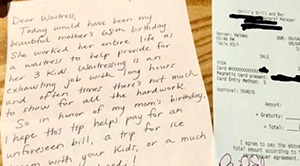 Dear Waitress,
Today would have been my
beautiful mother's 65th birthday.
She worked her entire life as
a waitress to help provide for
her 3 Kids. Waitressing is an
exhausting job with long hours
and often times there's not much
to show for all the hardwork.
So in honor of my mom's birthday,
I hope this tip helps pay for an
unforeseen bill, a trip for ice
with your Kids, or a much
Grill and Bar
Server:
05:48 PM
Table
SALE
VISA
Card
Magnetic card present:
Card Entry Method:
Approval:
Amount:
+ Gratuity:
= Total:
I agree to pay the above
total amount according to